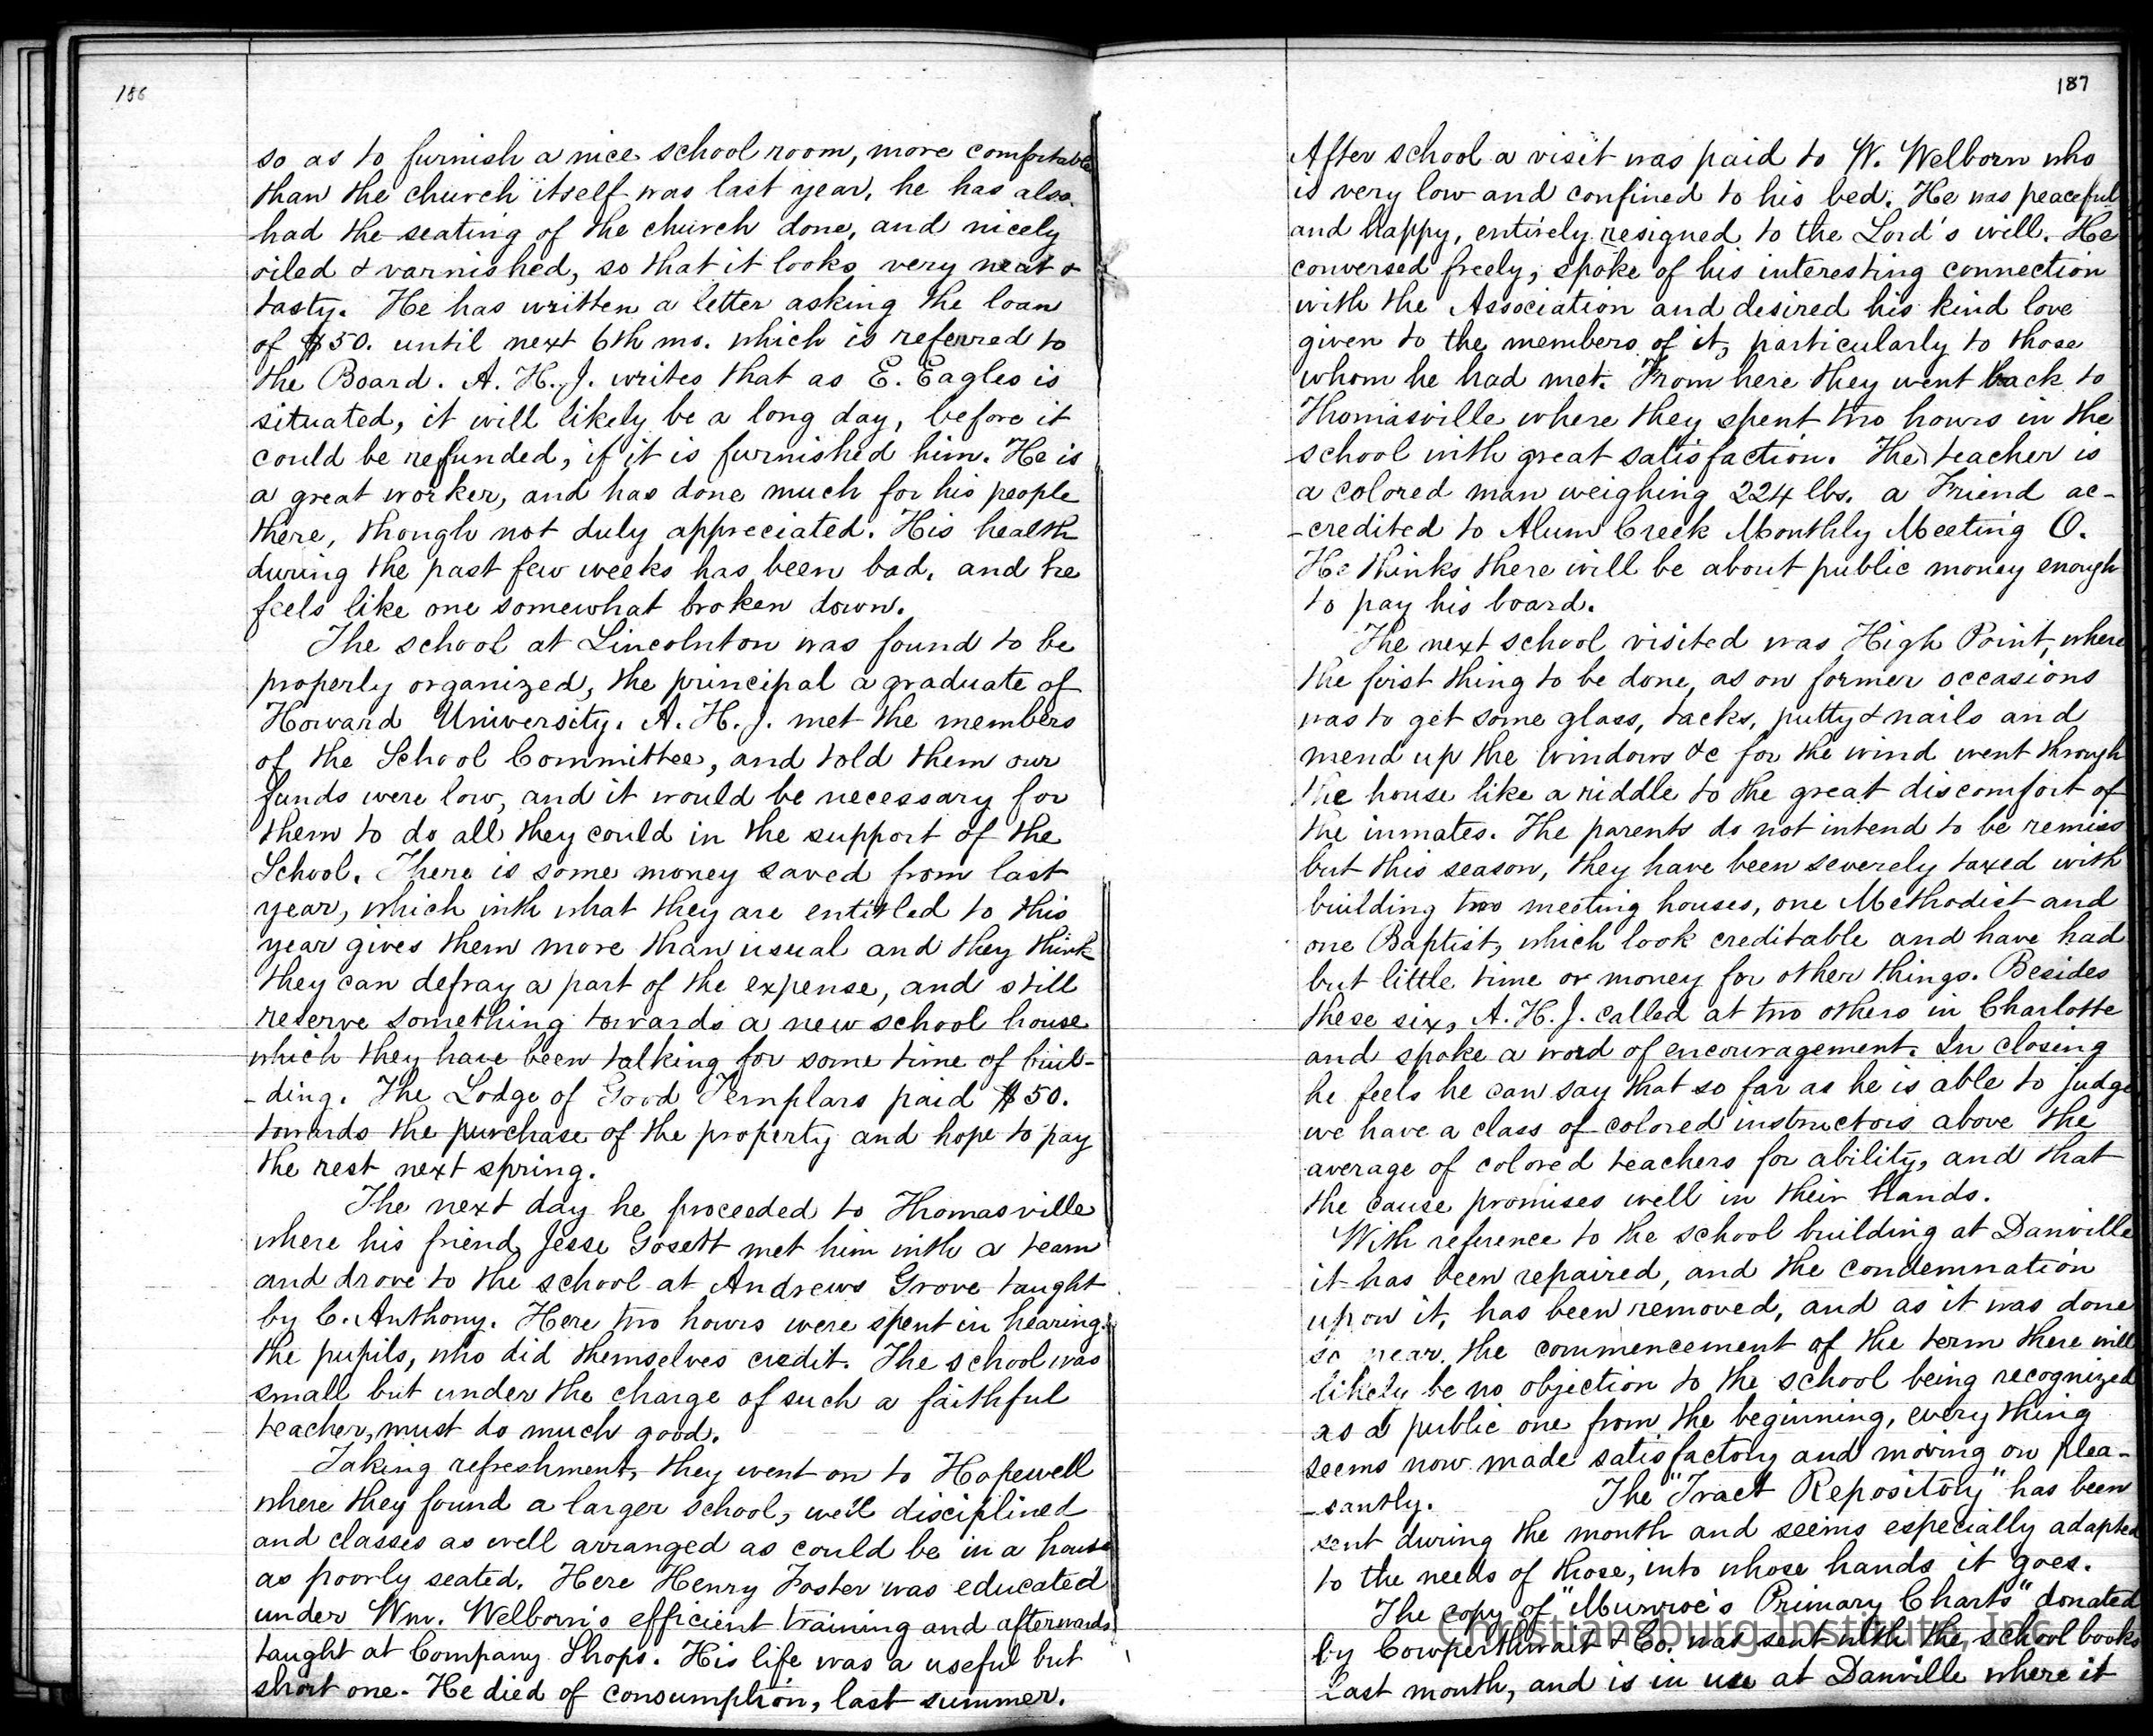 186
so as to furnish a nice school room, more comfortable
than the church itself was last year, he has also
had the seating of the church done, and nicely
oiled & varnished, so that it looks very neat &
tasty. He has written a letter asking the loan
of $50. until next 6th mo. which is referred to
the Board. A. H. J. writes that as E. Eagles is
situated, it will likely be a long day, before it
could be refunded, if it is furnished him. He is
a great worker, and has done much for his people
there, though not duly appreciated. His health
during the past few weeks has been bad, and he
feels like one somewhat broken down.
The school at Lincolnton was found to be
properly organized, the principal a graduate of
Howard University. A. H. J. met the members
of the School Committee, and told them our
funds were low, and it would be necessary for
them to do all they could in the support of the
School. There is some money saved from last
year, which with what they are entitled to this
year gives them more than usual and they think
they can defray a part of the expense, and still
reserve something towards a new school house
which they have been talking for some time of buil-
-ding. The Lodge of Good Templars paid $50.
towards the purchase of the property and hope to pay
the rest next spring.
The next day he proceeded to Thomasville
where his friend, Jesse Gosett met him with a team
and drove to the school at Andrews Grove taught
by C. Anthony. Here two hours were spent in hearing
the pupils, who did themselves credit. The school was
small but under the charge of such a faithful
teacher, must do much good.
Taking refreshment, they went on to Hopewell
where they found a larger school, well disciplined
and classes as well arranged as could be in a house
as poorly seated. Here Henry Foster was educated
under Wm. Welborn's efficient training and afterwards
taught at Company Shops. His life was a useful but
short one. He died of consumption, last summer.
187
After school a visit was paid to W. Welborn who
is very low and confined to his bed. He was peaceful
and happy, entirely resigned to the Lord's will. He
conversed freely, spoke of his interesting connection
with the Association and desired his kind love
given to the members of it, particularly to those
whom he had met. From here they went back to
Thomasville where they spent two hours in the
school with great satisfaction. The teacher is
a colored man weighing 224 lbs. a Friend ac-
-credited to Alum Creek Monthly Meeting O.
He thinks there will be about public money enough
to pay his board.
The next school visited was High Point, where
the first thing to be done, as on former occasions
was to get some glass, tacks, putty & nails and
mend up the windows &c for the wind went through
the house like a riddle to the great discomfort of
the inmates. The parents do not intend to be remiss
but this season, they have been severely taxed with
building two meeting houses, one Methodist and
one Baptist, which look creditable and have had
but little time or money for other things. Besides
these six, A. H. J. called at two others in Charlotte
and spoke a word of encouragement. In closing
he feels he can say that so far as he is able to judge
we have a class of colored instructors above the
average of colored teachers for ability, and that
the cause promises well in their hands.
With reference to the school building at Danville
it has been repaired, and the condemnation
upon it, has been removed, and as it was done
so near the commencement of the term there will
likely be no objection to the school being recognized
as a public one from the beginning, every thing
seems now made satisfactory and moving on plea-
-santly. The "Tract Repository" has been
sent during the month and seems especially adapted
to the needs of those, into whose hands it goes.
The copy of "Munroe's Primary Charts" donated
by Cowperthwait & Co. was sent with the school books
last month, and is in use at Danville where it
Christiansburg Institute, Inc.